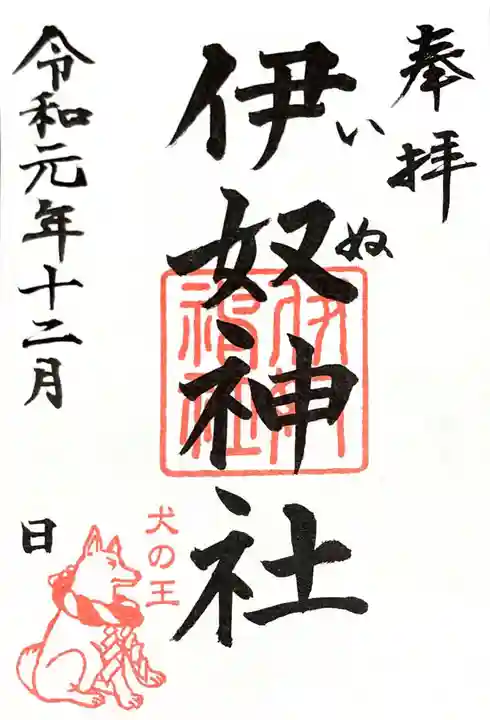 奉拝
伊奴神社
いぬ
伊奴
神社
令和元年十二月
日
犬の王